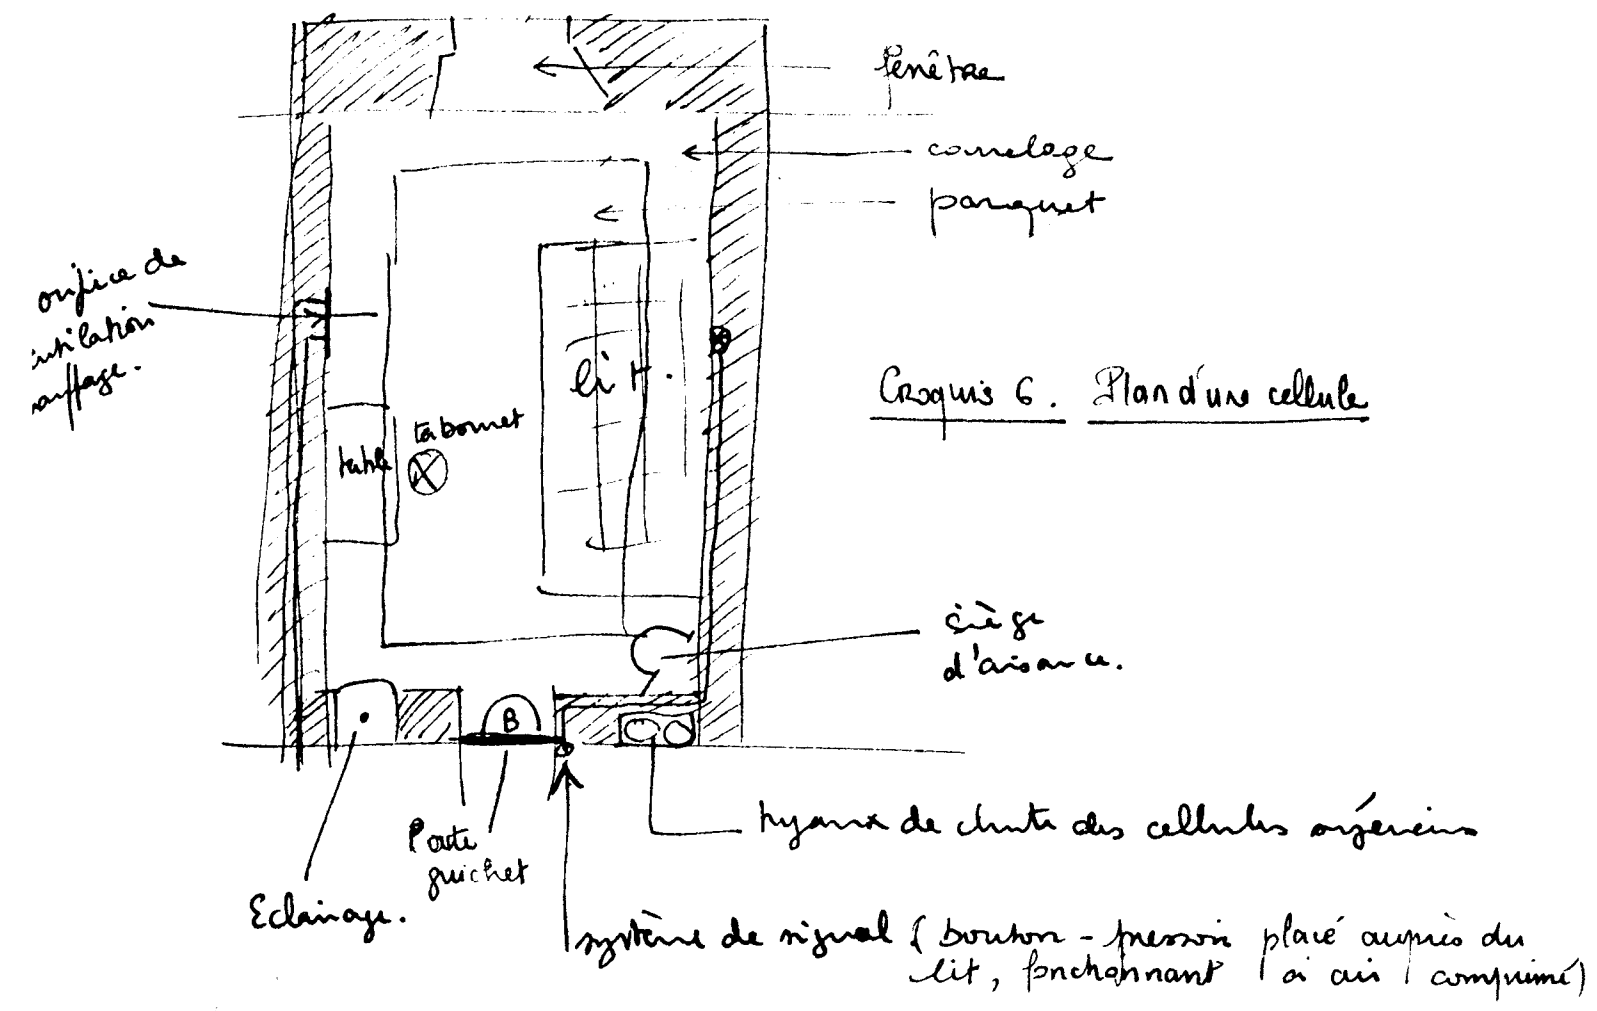 fenêtre
carrelage
parquet
orifice de
ntilation
auffage.
lit.
tabouret
table
Croquis 6. Plan d'une cellule
siège
d'aisance.
B
tuyaux de chute des cellules
Porte
guichet
Eclairage.
système de signal (bouton-pressoir placé auprès du
lit, fonctionnant à air comprimé)